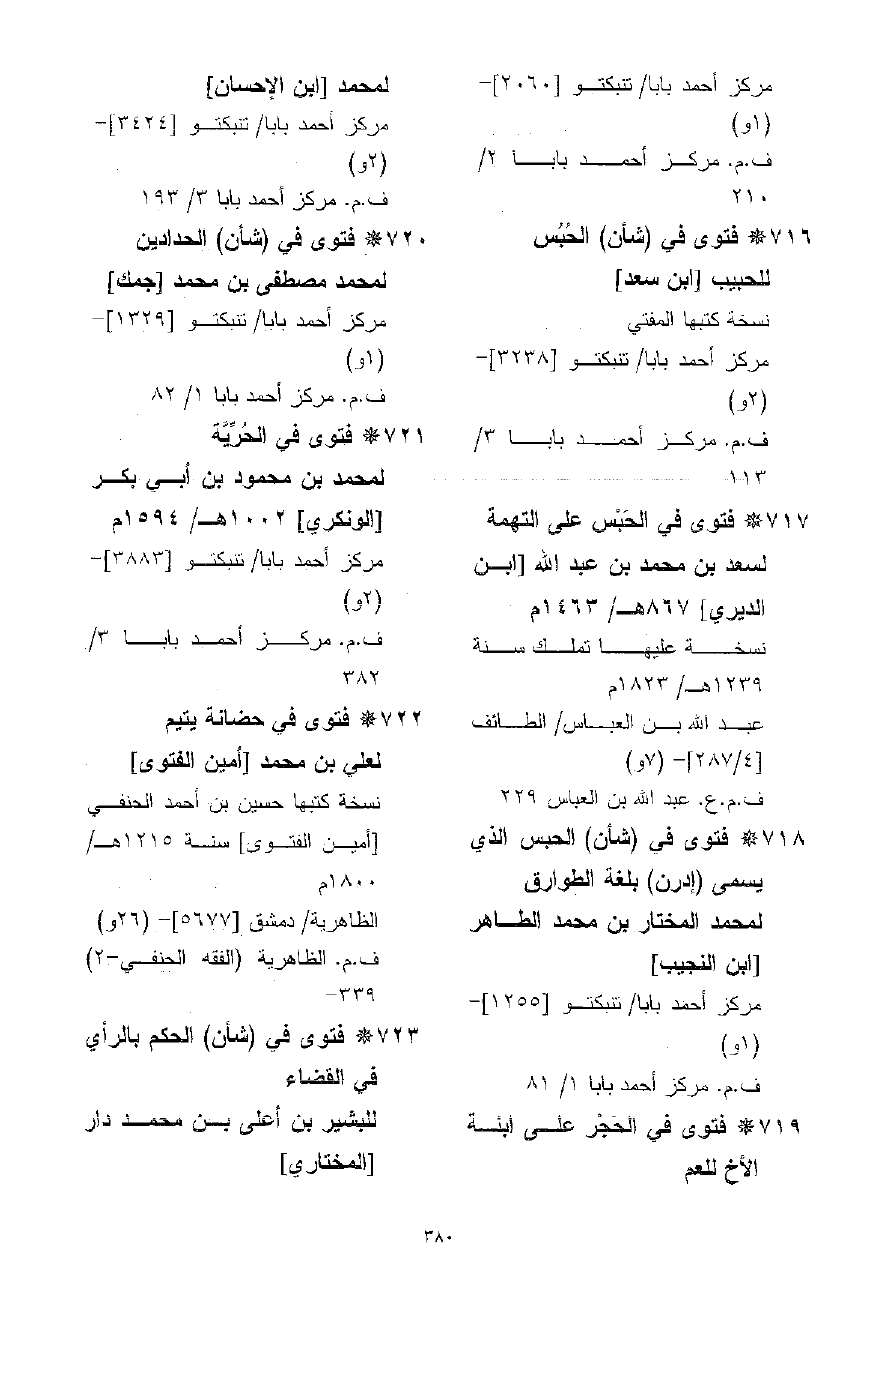 مركز أحمد بابا/ تنبكتو [٢٠٦٠]-
(١و)
ف.م. مركز أحمد بابا ٢/
٢١٠
٧١٦* فتوى في (شأن) الحُبُس
للحبيب [ابن سعد]
نسخة كتبها المفتي
مركز أحمد بابا/ تنبكتو [٣٢٣٨]-
(٢و)
ف.م. مركز أحمد بابا ٣/
١١٣
٧١٧* فتوى في الحَبْس على التهمة
لسعد بن محمد بن عبد الله [ابن
الديري] ٨٦٧هـ/ ١٤٦٣م
نسخة عليها تملك سنة
١٢٣٩هـ/ ١٨٢٣م
عبد الله بن العباس/ الطائف
[٢٨٧/٤]- (٧و)
ف.م.ع. عبد الله بن العباس ٢٢٩
٧١٨* فتوى في (شأن) الحبس الذي
يسمى (إدرن) بلغة الطوارق
لمحمد المختار بن محمد الطاهر
[ابن النجيب]
مركز أحمد بابا/ تنبكتو [١٢٥٥]-
(١و)
ف.م. مركز أحمد بابا ١/ ٨١
٧١٩* فتوى في الحَجْر على ابنة
الأخ للعم
لمحمد [ابن الإحسان]
مركز أحمد بابا/ تنبكتو [٣٤٢٤]-
(٢و)
ف.م. مركز أحمد بابا ٣/ ١٩٣
٧٢٠* فتوى في (شأن) الحدادين
لمحمد مصطفى بن محمد [جمك]
مركز أحمد بابا/ تنبكتو [١٣٢٩]-
(١و)
ف.م. مركز أحمد بابا ١/ ٨٢
٧٢١* فتوى في الحُرِّيَّة
لمحمد بن محمود بن أبي بكر
[الونكري] ١٠٠٢هـ/ ١٥٩٤م
مركز أحمد بابا/ تنبكتو [٣٨٨٣]-
(٢و)
ف.م. مركز أحمد بابا ٣/
٣٨٢
٧٢٢* فتوى في حضانة يتيم
لعلي بن محمد [أمين الفتوى]
نسخة كتبها حسين بن أحمد الحنفي
[أمين الفتوى] سنة ١٢١٥هـ/
١٨٠٠م
الظاهرية/ دمشق [٥٦٧٧]- (٢٦و)
ف.م. الظاهرية (الفقه الحنفي-٢)
٣٣٩-
٧٢٣* فتوى في (شأن) الحكم بالرأي
في القضاء
للبشير بن أعلى بن محمد دار
[المختاري]
٣٨٠